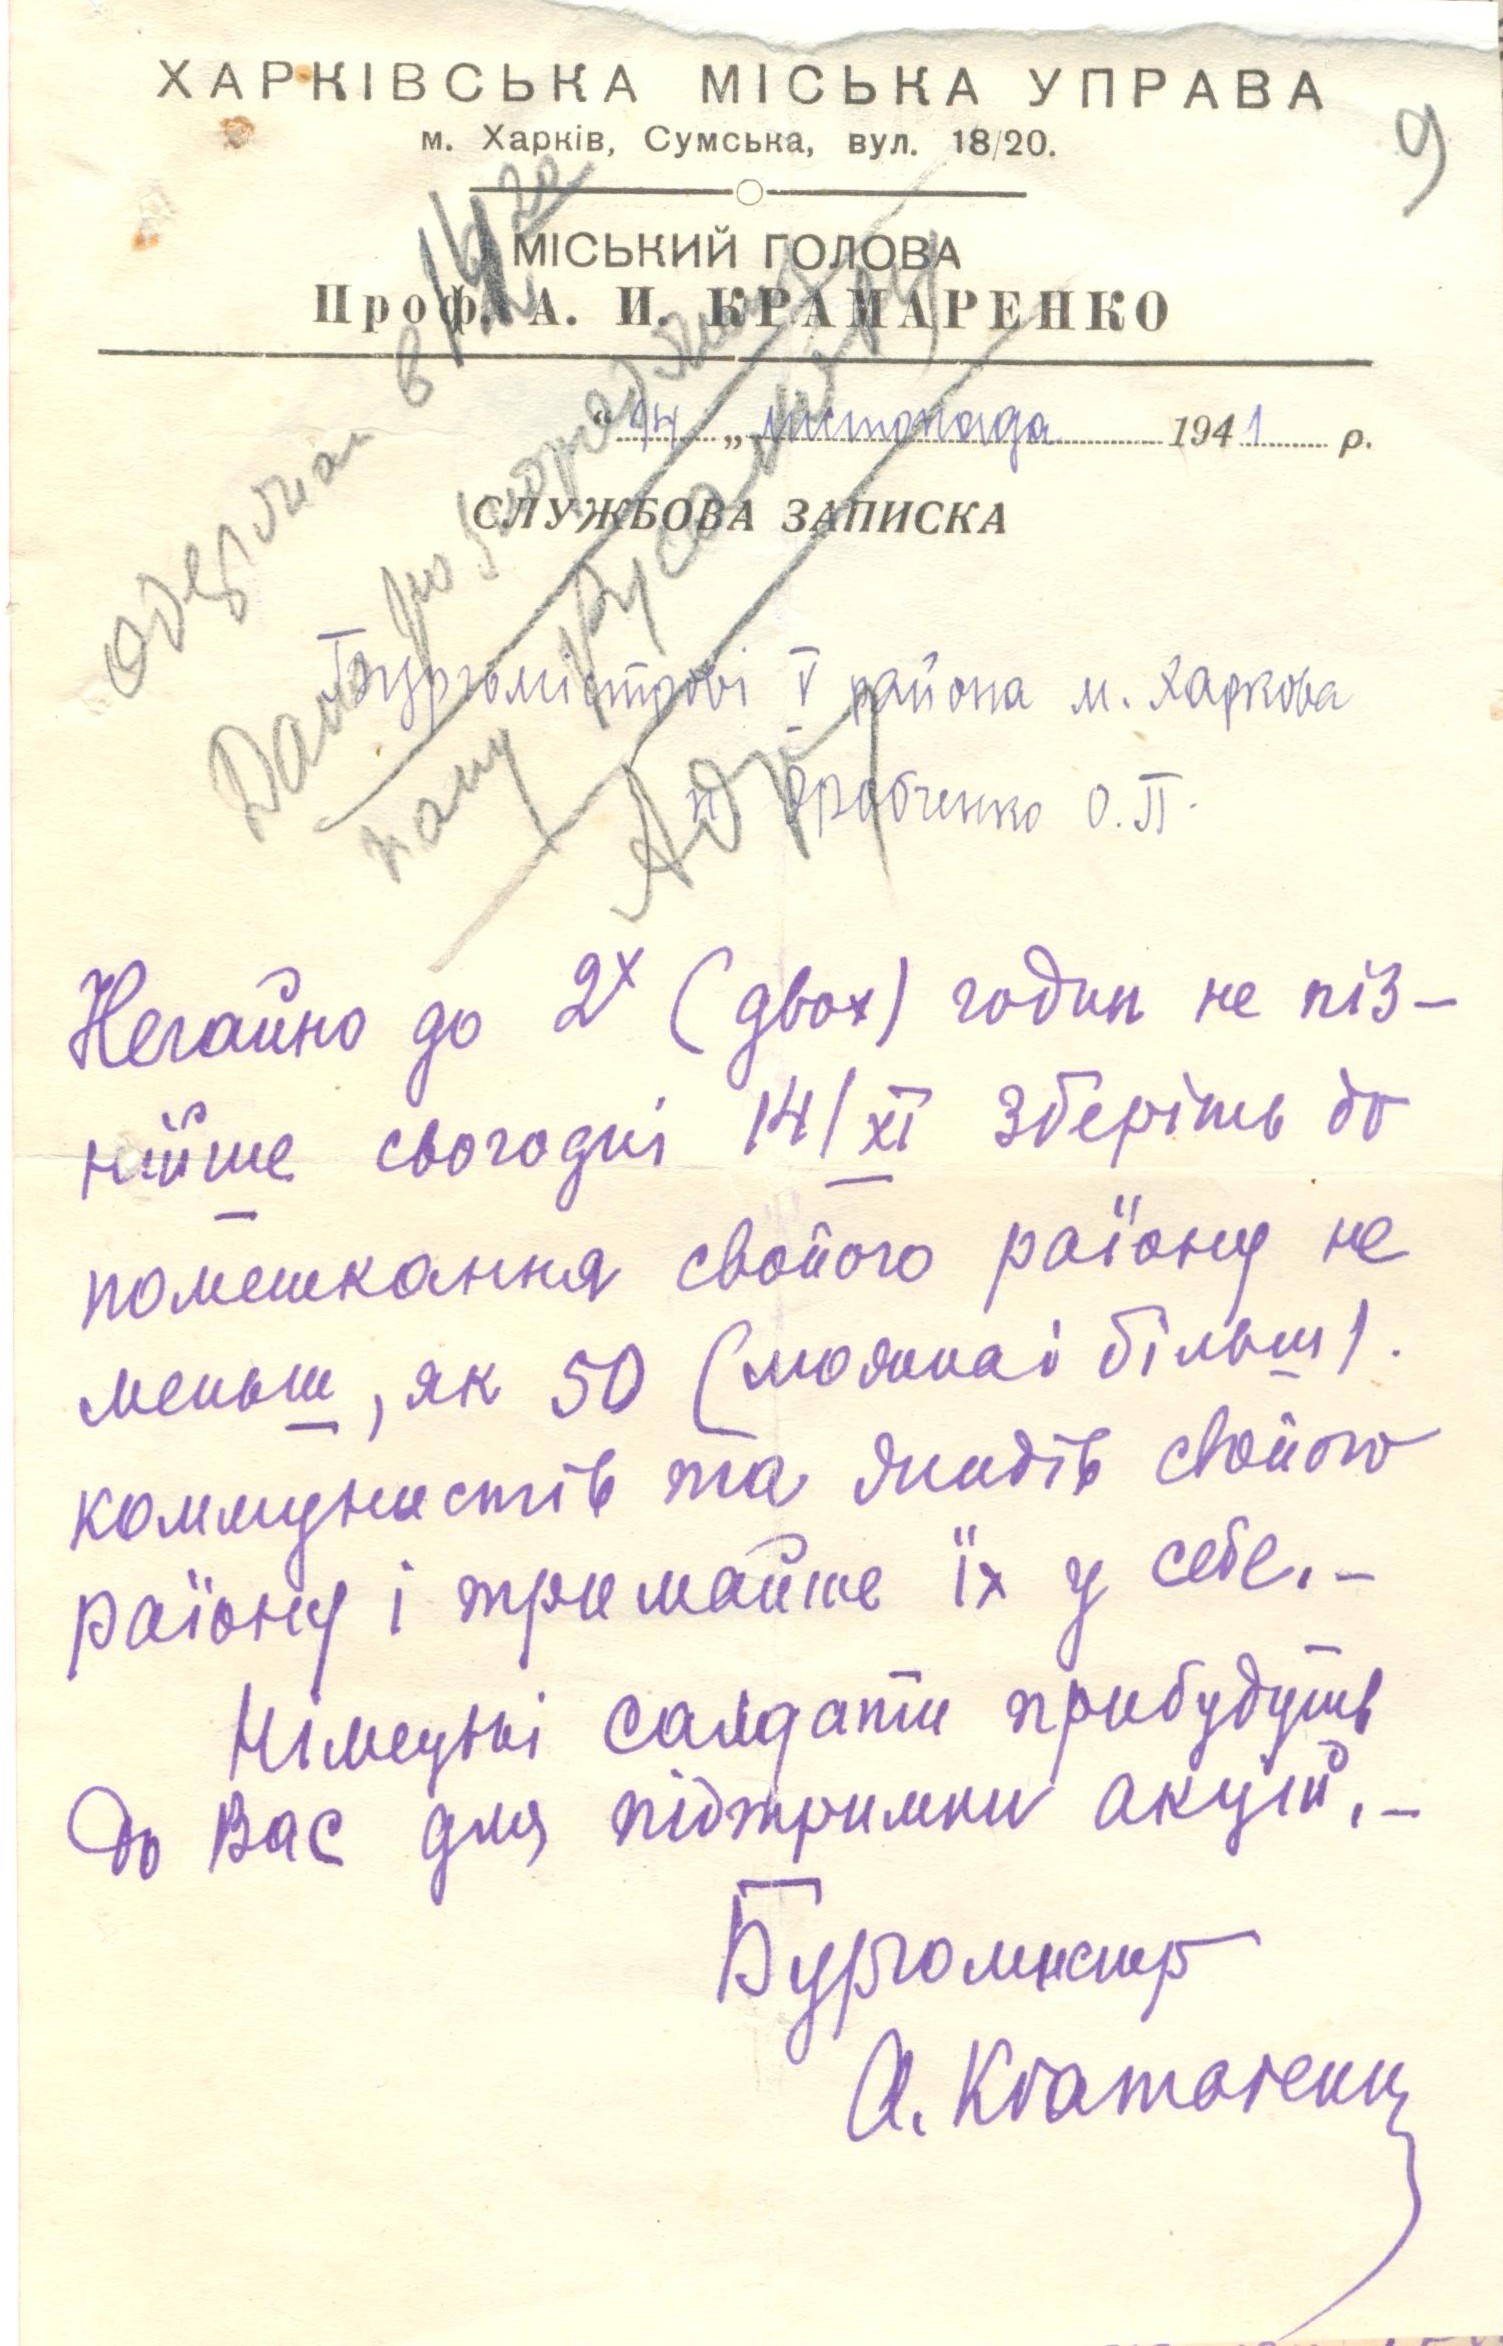 ХАРКІВСЬКА МІСЬКА УПРАВА
м. Харків, Сумська, вул. 18/20.
9
МІСЬКИЙ ГОЛОВА
Проф. А. И. КРАМАРЕНКО
„14„ листопада 1941 р.
СЛУЖБОВА ЗАПИСКА
Одержал в 14 20
Дано
пану
Бургомістрові V района м. Харкова
п. О.П.
Негайно до 2х (двох) годин не піз-
нійше сьогодні 14/XI зберіть до
помешкання свойого раїону не
меньш, як 50 (можна і більш).
коммунистів та жидів свойого
раїону і тримайте їх у себе.-
Німецькі салдати прибудуть
до Вас для підтримки акцій.-
Бургомистр
А. Крамаренко